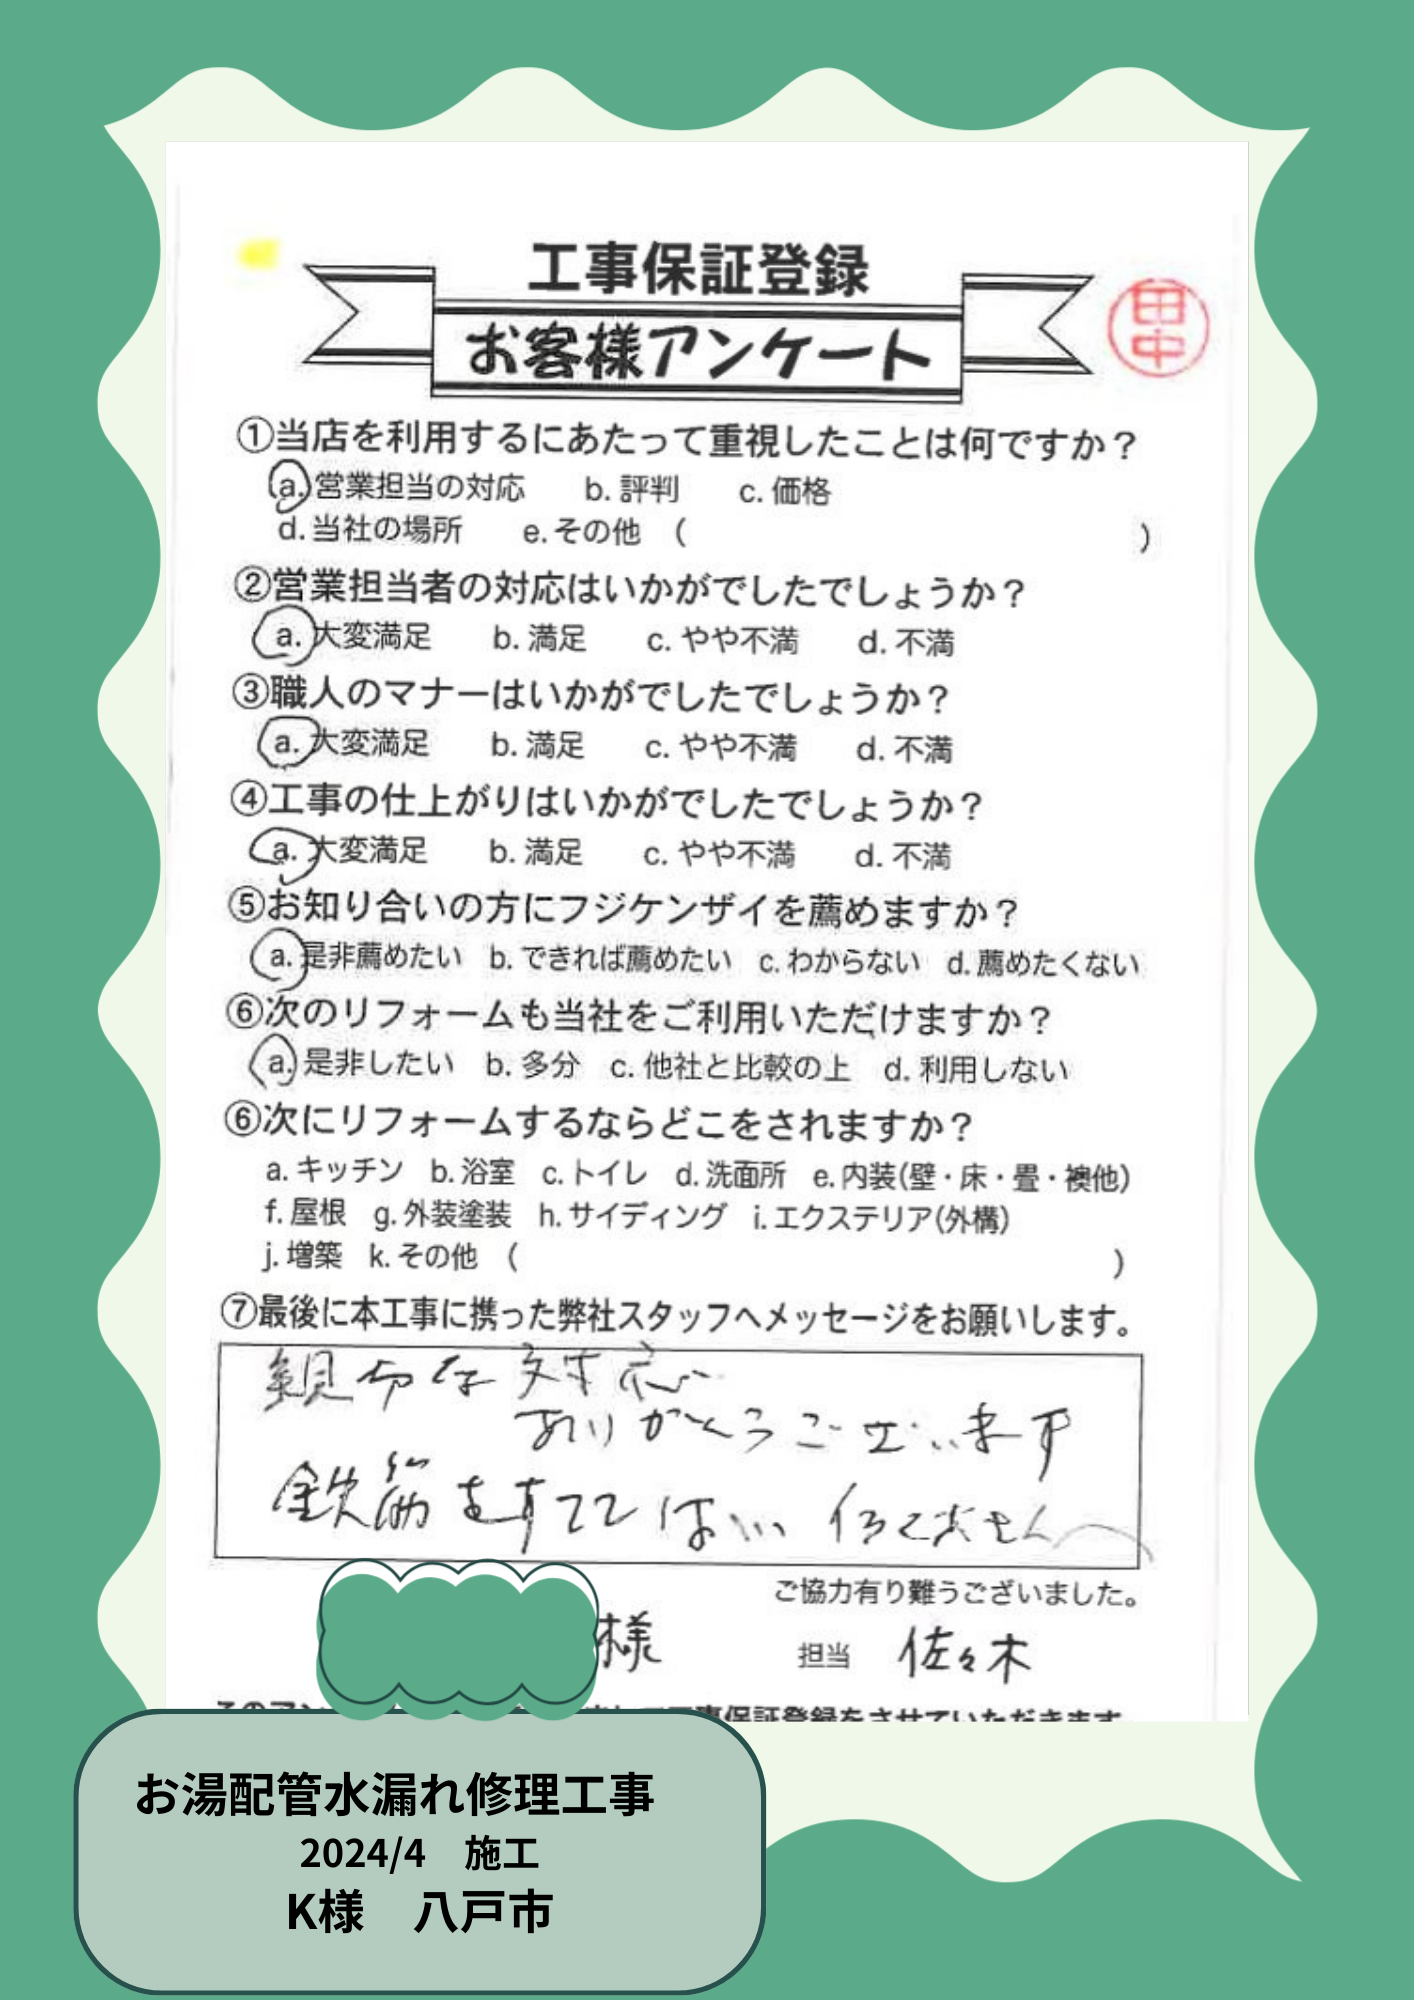 工事保証登録
お客様アンケート
田中
①当店を利用するにあたって重視したことは何ですか？
a. 営業担当の対応 b. 評判 c. 価格
d. 当社の場所 e. その他 ( )
②営業担当者の対応はいかがでしたでしょうか？
a. 大変満足 b. 満足 c. やや不満 d. 不満
③職人のマナーはいかがでしたでしょうか？
a. 大変満足 b. 満足 c. やや不満 d. 不満
④工事の仕上がりはいかがでしたでしょうか？
a. 大変満足 b. 満足 c. やや不満 d. 不満
⑤お知り合いの方にフジケンザイを薦めますか？
a. 是非薦めたい b. できれば薦めたい c. わからない d. 薦めたくない
⑥次のリフォームも当社をご利用いただけますか？
a. 是非したい b. 多分 c. 他社と比較の上 d. 利用しない
⑥次にリフォームするならどこをされますか？
a. キッチン b. 浴室 c. トイレ d. 洗面所 e. 内装(壁・床・畳・襖他)
f. 屋根 g. 外装塗装 h. サイディング i. エクステリア(外構)
j. 増築 k. その他 ( )
⑦最後に本工事に携った弊社スタッフへメッセージをお願いします。
親切な対応
ありがとうございます
鉄筋をすててほしい
ご協力有り難うございました。
様 担当 佐々木
工事保証登録をさせていただきます
お湯配管水漏れ修理工事
2024/4 施工
K様 八戸市